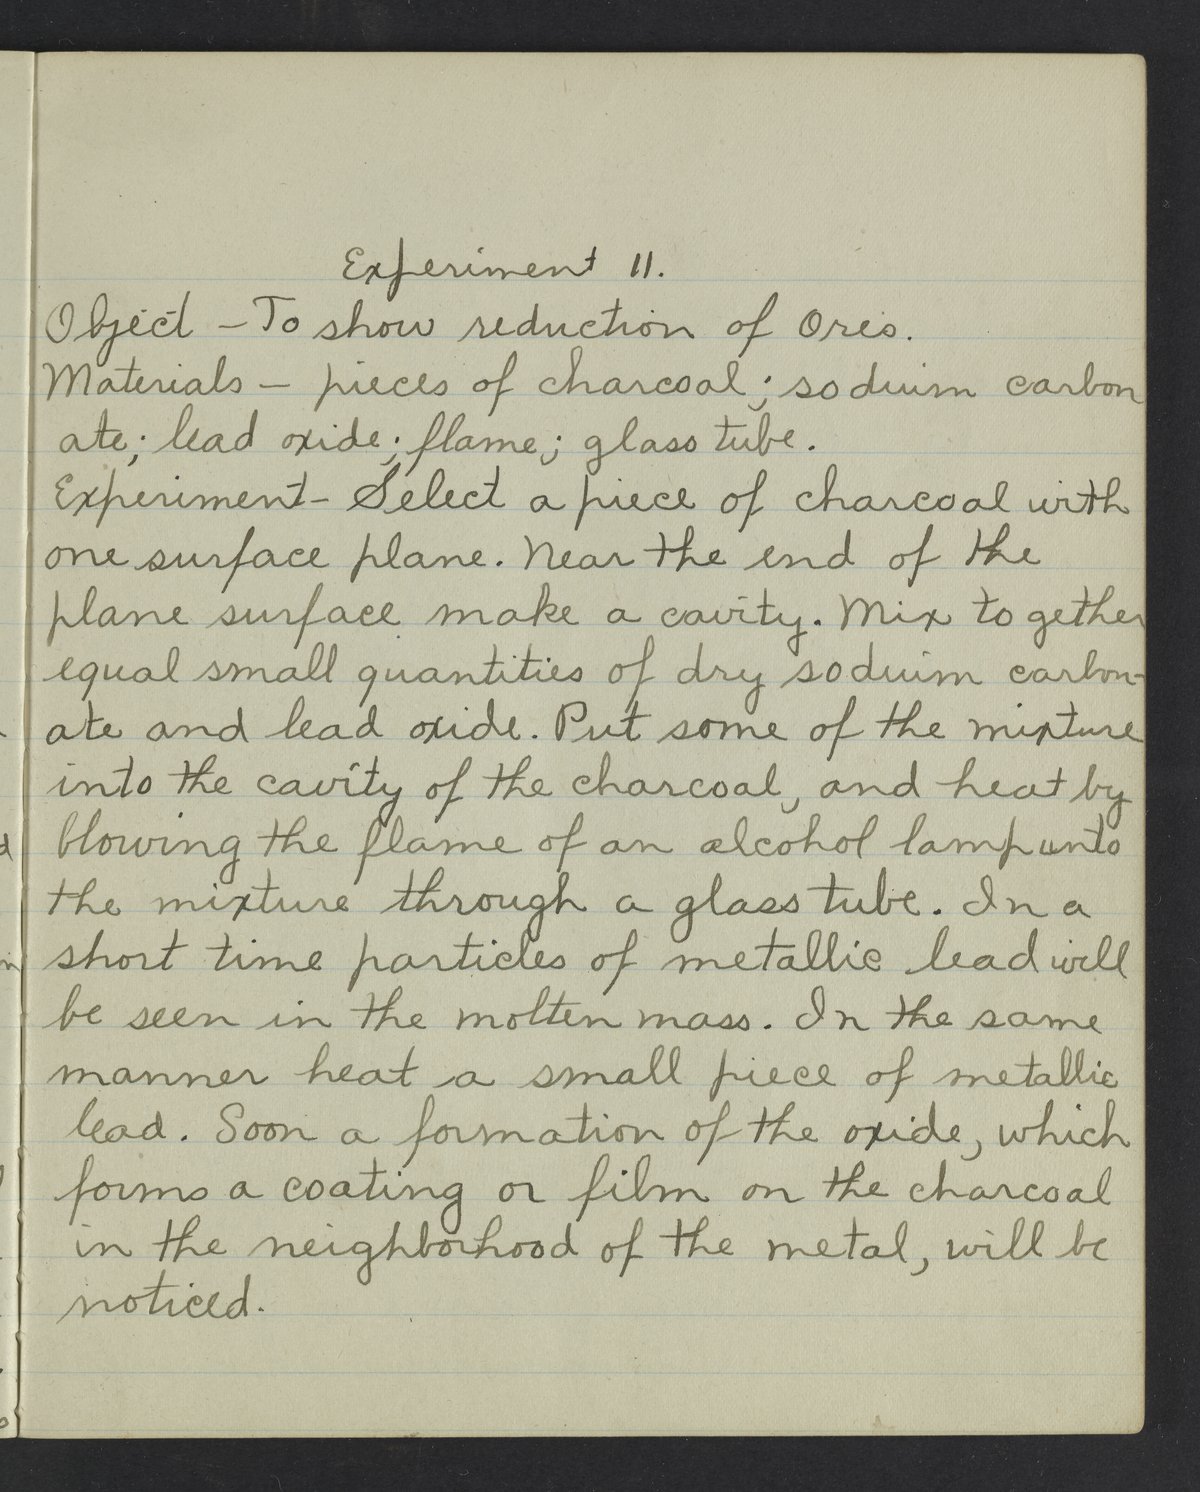 Experiment 11.
Object - To show reduction of Ores.
Materials - pieces of charcoal; soduim carbon
ate; lead oxide; flame; glass tube.
Experiment - Select a piece of charcoal with
one surface plane. Near the end of the
plane surface make a cavity. Mix together
equal small quantities of dry soduim carbon-
ate and lead oxide. Put some of the mixture
into the cavity of the charcoal, and heat by
blowing the flame of an alcohol lamp unto
the mixture through a glass tube. In a
short time particles of metallic lead will
be seen in the molten mass. In the same
manner heat a small piece of metallic
lead. Soon a formation of the oxide, which
forms a coating or film on the charcoal
in the neighborhood of the metal, will be
noticed.